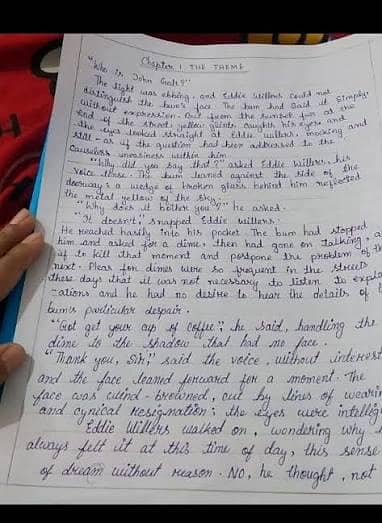 Chapter 1 THE THEME
"Who is John Galt?"
The light was ebbing, and Eddie Willers could not
distinguish the bum's face. The bum had said it simply,
without expression. But from the sunset far at the
end of the street, yellow glints caught his eyes, and
the eyes looked straight at Eddie Willers, mocking and
still - as if the question had been addressed to the
causeless uneasiness within him
"Why did you say that?" asked Eddie Willers, his
voice tense. The bum leaned against the side of the
doorway; a wedge of broken glass behind him reflected
the metal yellow of the sky.
"Why does it bother you?" he asked.
"It doesn't," snapped Eddie Willers.
He reached hastily into his pocket. The bum had stopped
him and asked for a dime, then had gone on talking,
if to kill that moment and postpone the problem of th
next. Pleas for dimes were so frequent in the streets
these days that it was not necessary to listen to expla
-ations and he had no desire to hear the details of
bum's particular despair.
"Go get your cup of coffee", he said, handling the
dime to the shadow that had no face.
"Thank you, Sir," said the voice, without interest
and the face leaned forward for a moment. The
face was wind-browned, cut by lines of wearin
and cynical resignation; the eyes were intellig
Eddie Willers walked on, wondering why
always felt it at this time of day, this sense
of dream without reason. No, he thought, not